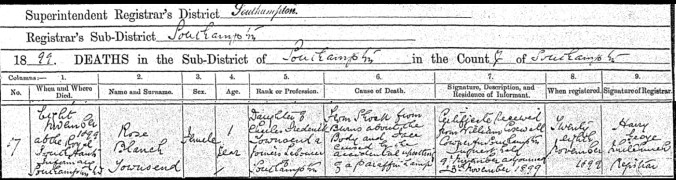 Superintendent Registrar's District Southampton
Registrar's Sub-District Southampton
1899. DEATHS in the Sub-District of Southampton in the County of Southampton
Columns:— 1. 2. 3. 4. 5. 6. 7. 8. 9.
No. When and Where Died. Name and Surname. Sex. Age. Rank or Profession. Cause of Death. Signature, Description, and Residence of Informant. When registered. Signature of Registrar.
7
Eight
November
1899
at the Royal
South Hants
Infirmary
Southampton
Rose
Blanch
Townsend
Female
1
Year
Daughter of
Frederick
Townsend a
Labourer
Southampton
From Shock from
Burns about the
Body and Face
caused by the
accidental upsetting
of a Paraffin Lamp
Certificate Received
from William
Coroner for Southampton
Inquest held
9th November adjourned
23rd November 1899
Twenty
eighth
November
1899
Harry
George
Registrar